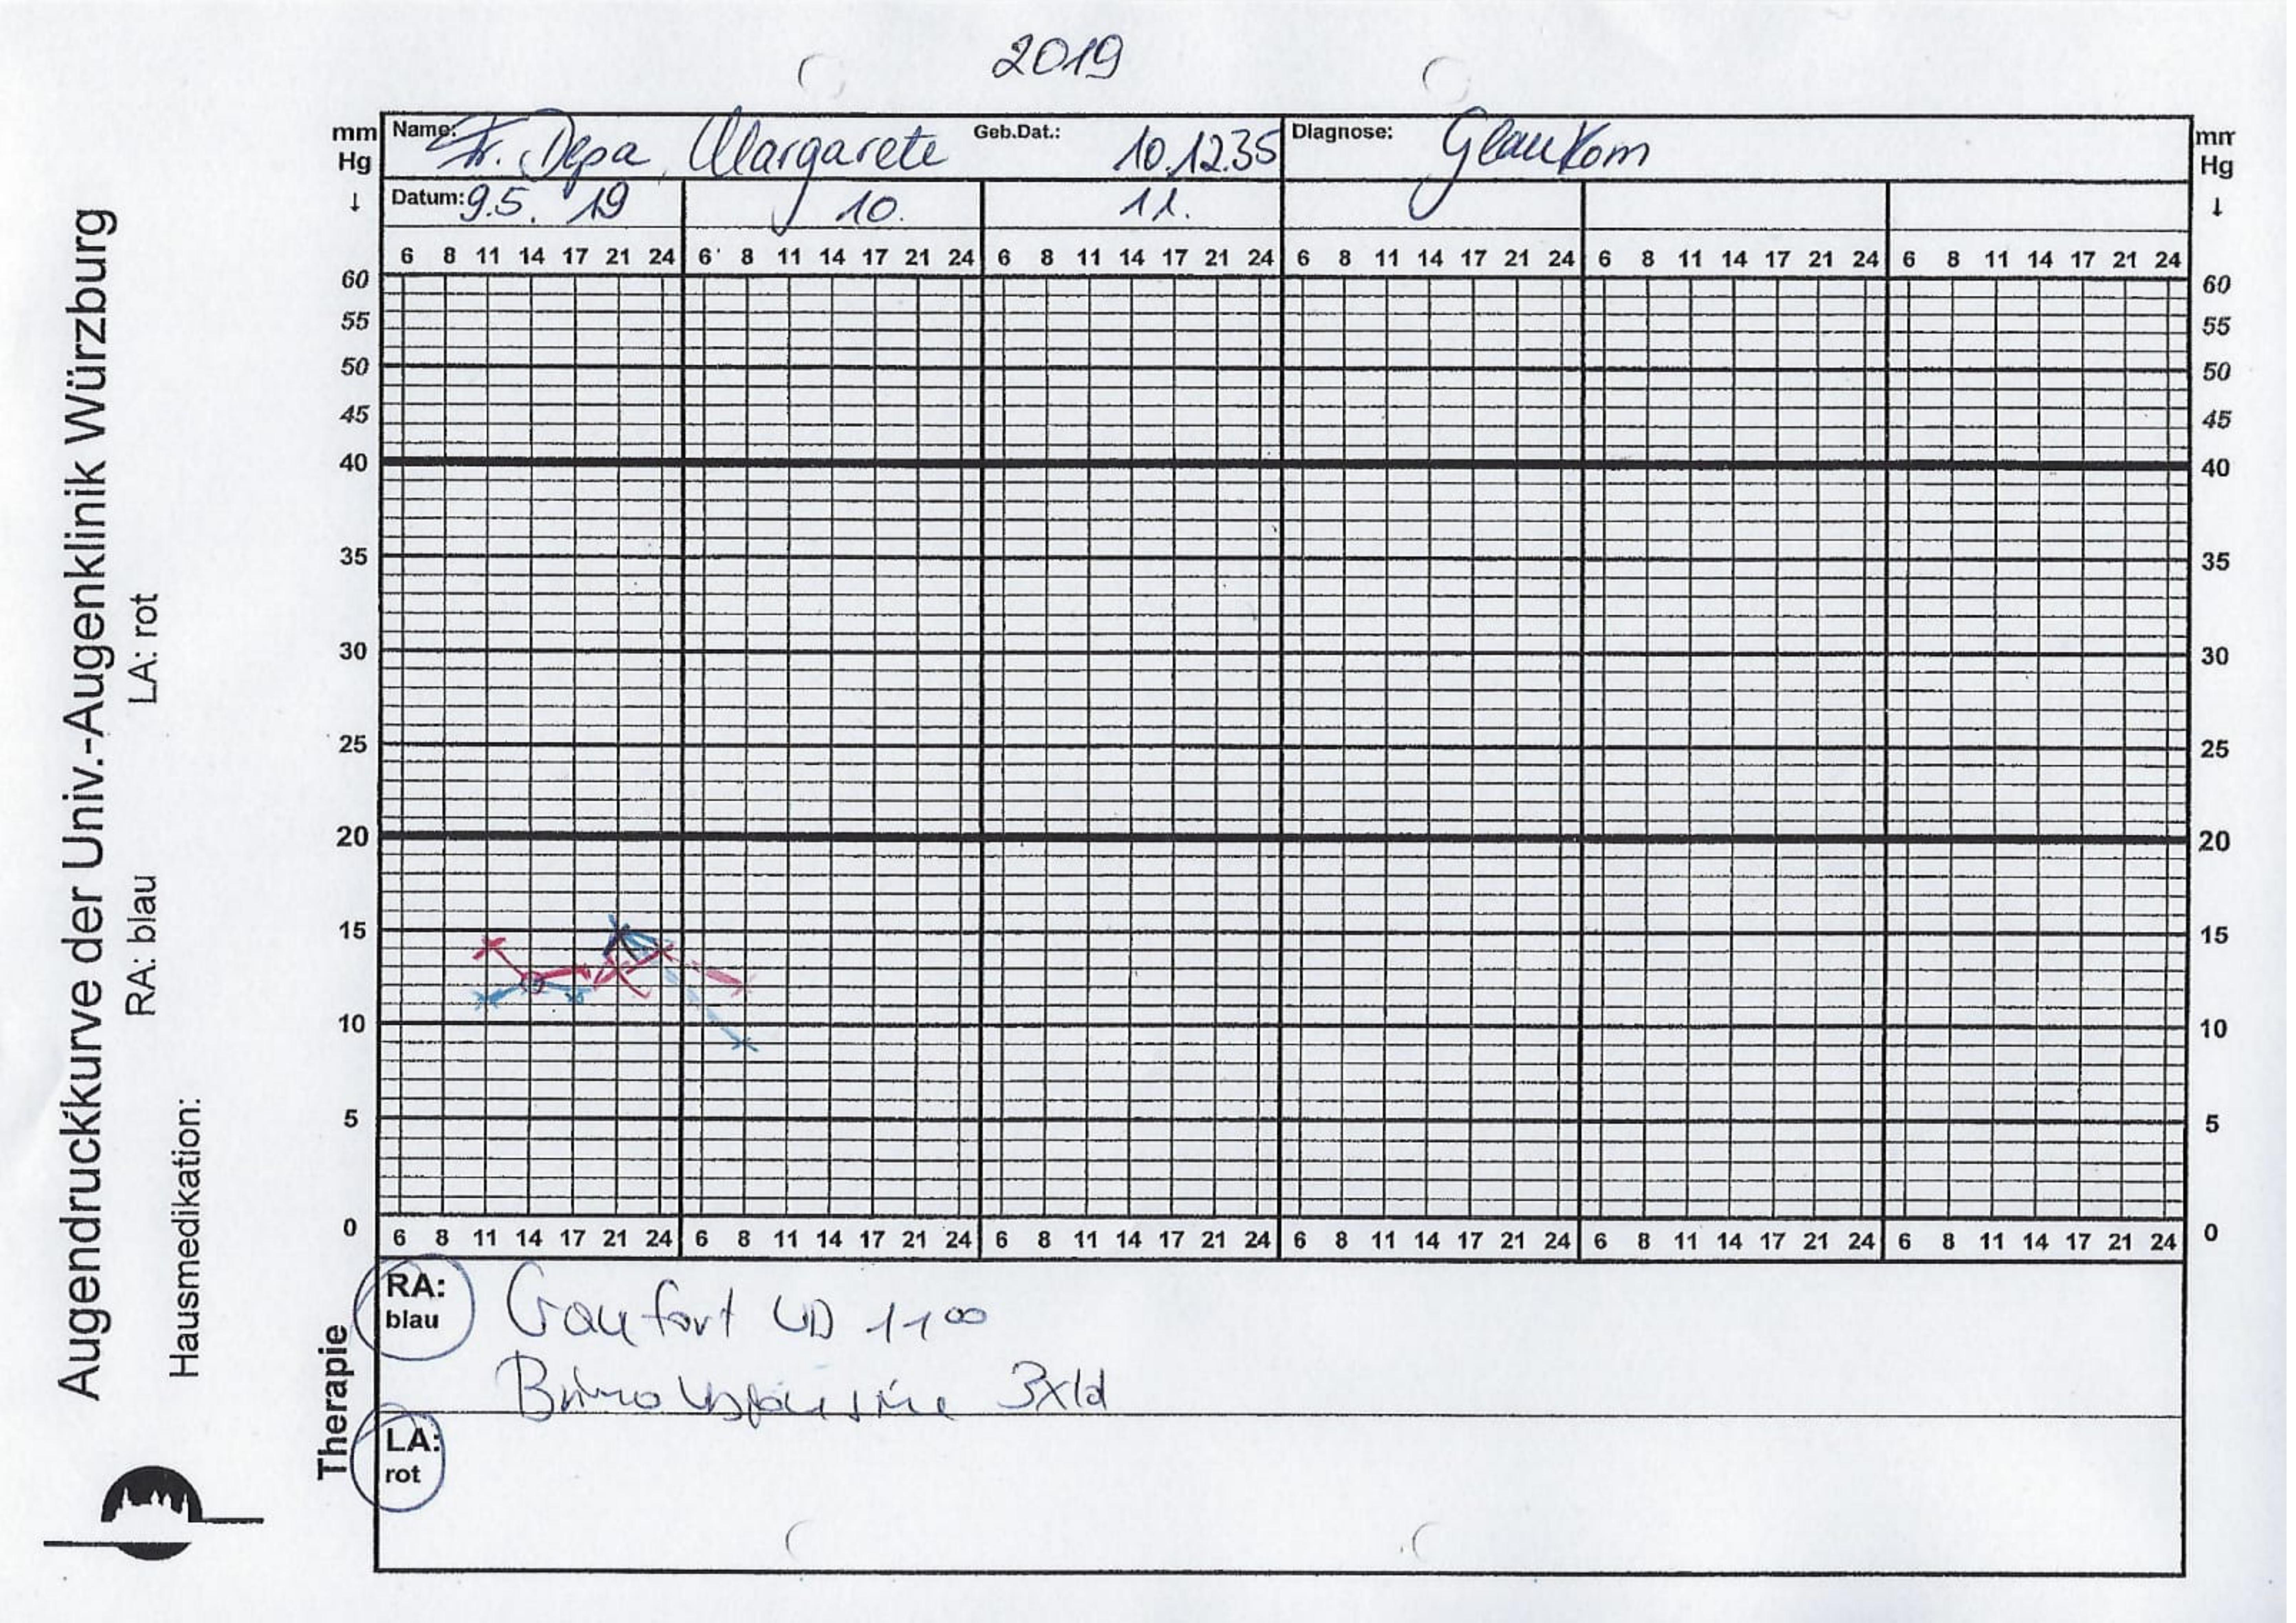 2019
mm Hg ↓
Name: Fr. Depa, Margarete Geb.Dat.: 10.12.35 Diagnose: Glaukom
mm Hg ↓
Datum: 9.5. 19 10. 11.
6 8 11 14 17 21 24 6 8 11 14 17 21 24 6 8 11 14 17 21 24 6 8 11 14 17 21 24 6 8 11 14 17 21 24 6 8 11 14 17 21 24
60 60
55 55
50 50
45 45
40 40
35 35
30 30
25 25
20 20
15 15
10 10
5 5
0 0
6 8 11 14 17 21 24 6 8 11 14 17 21 24 6 8 11 14 17 21 24 6 8 11 14 17 21 24 6 8 11 14 17 21 24 6 8 11 14 17 21 24
Therapie
RA: blau
11⁰⁰
3x/d
LA: rot
Augendruckkurve der Univ.-Augenklinik Würzburg
RA: blau LA: rot
Hausmedikation: